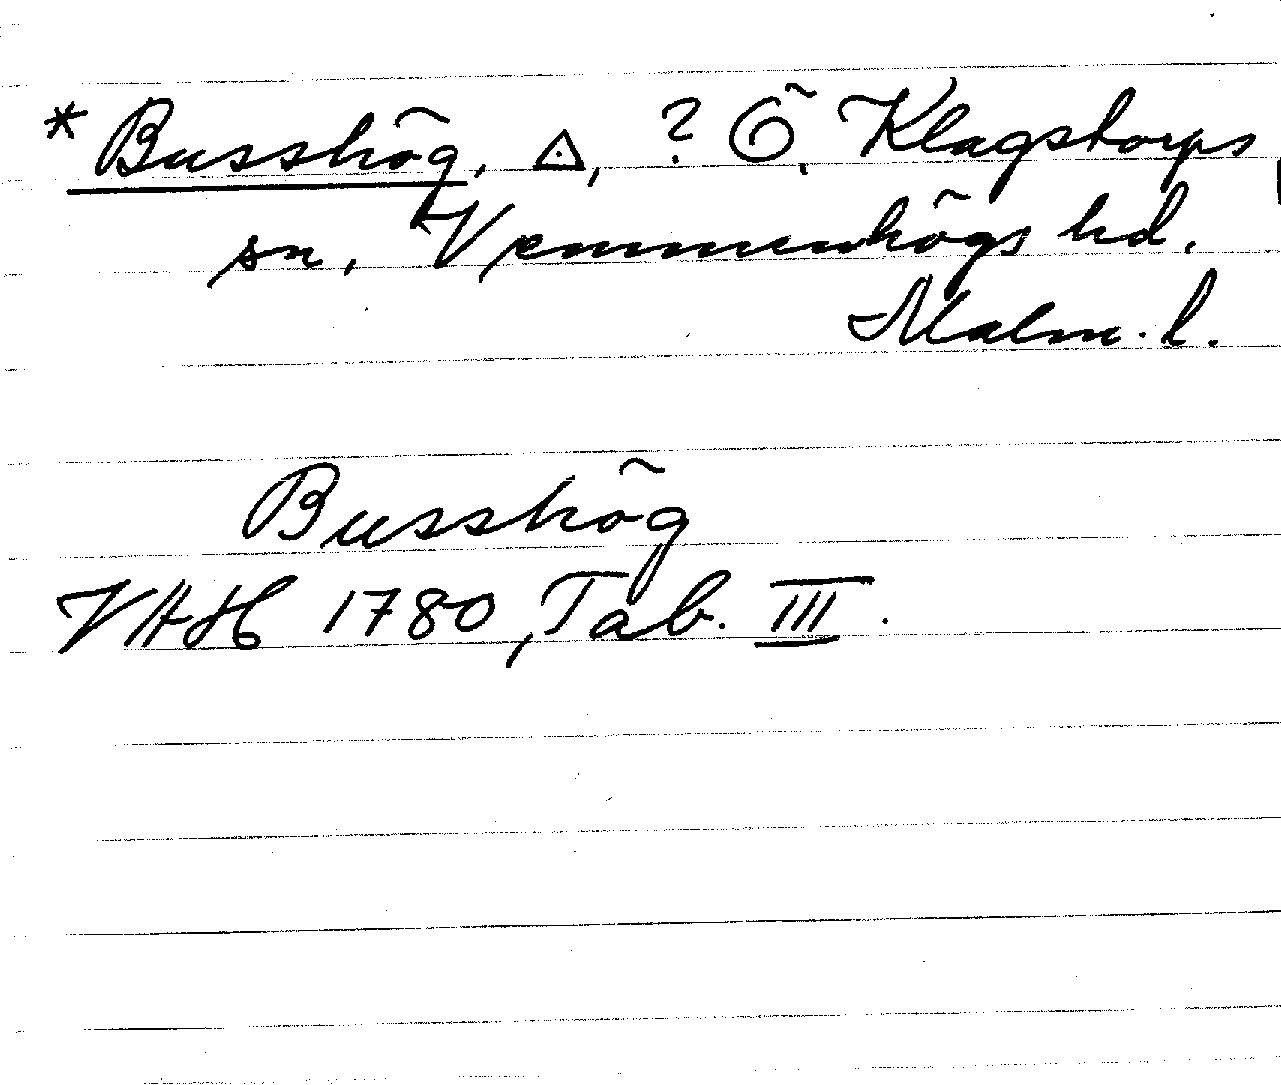 *Busshög, △, ? Ö. Klagstorps
sn, Vemmenhögs hd.
Malm. l.
Busshög
VAH 1780, Tab. III.